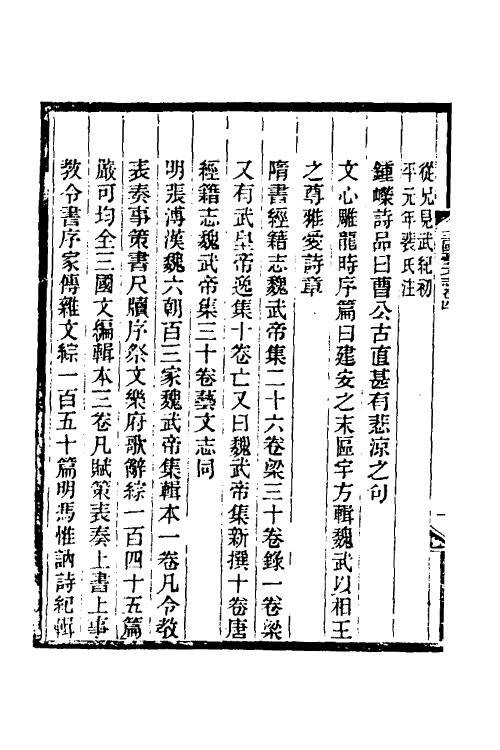 從兄見武紀初
平元年裴氏注
鍾嶸詩品曰曹公古直甚有悲涼之句
文心雕龍時序篇曰建安之末區宇方輯魏武以相王
之尊雅愛詩章
隋書經籍志魏武帝集二十六卷梁三十卷錄一卷梁
又有武皇帝逸集十卷亡又曰魏武帝集新撰十卷唐
經籍志魏武帝集三十卷藝文志同
明張溥漢魏六朝百三家魏武帝集輯本一卷凡令教
表奏事策書尺牘序祭文樂府歌辭綜一百四十五篇
嚴可均全三國文編輯本三卷凡賦策表奏上書上事
教令書序家傳雜文綜一百五十篇明馮惟訥詩紀輯